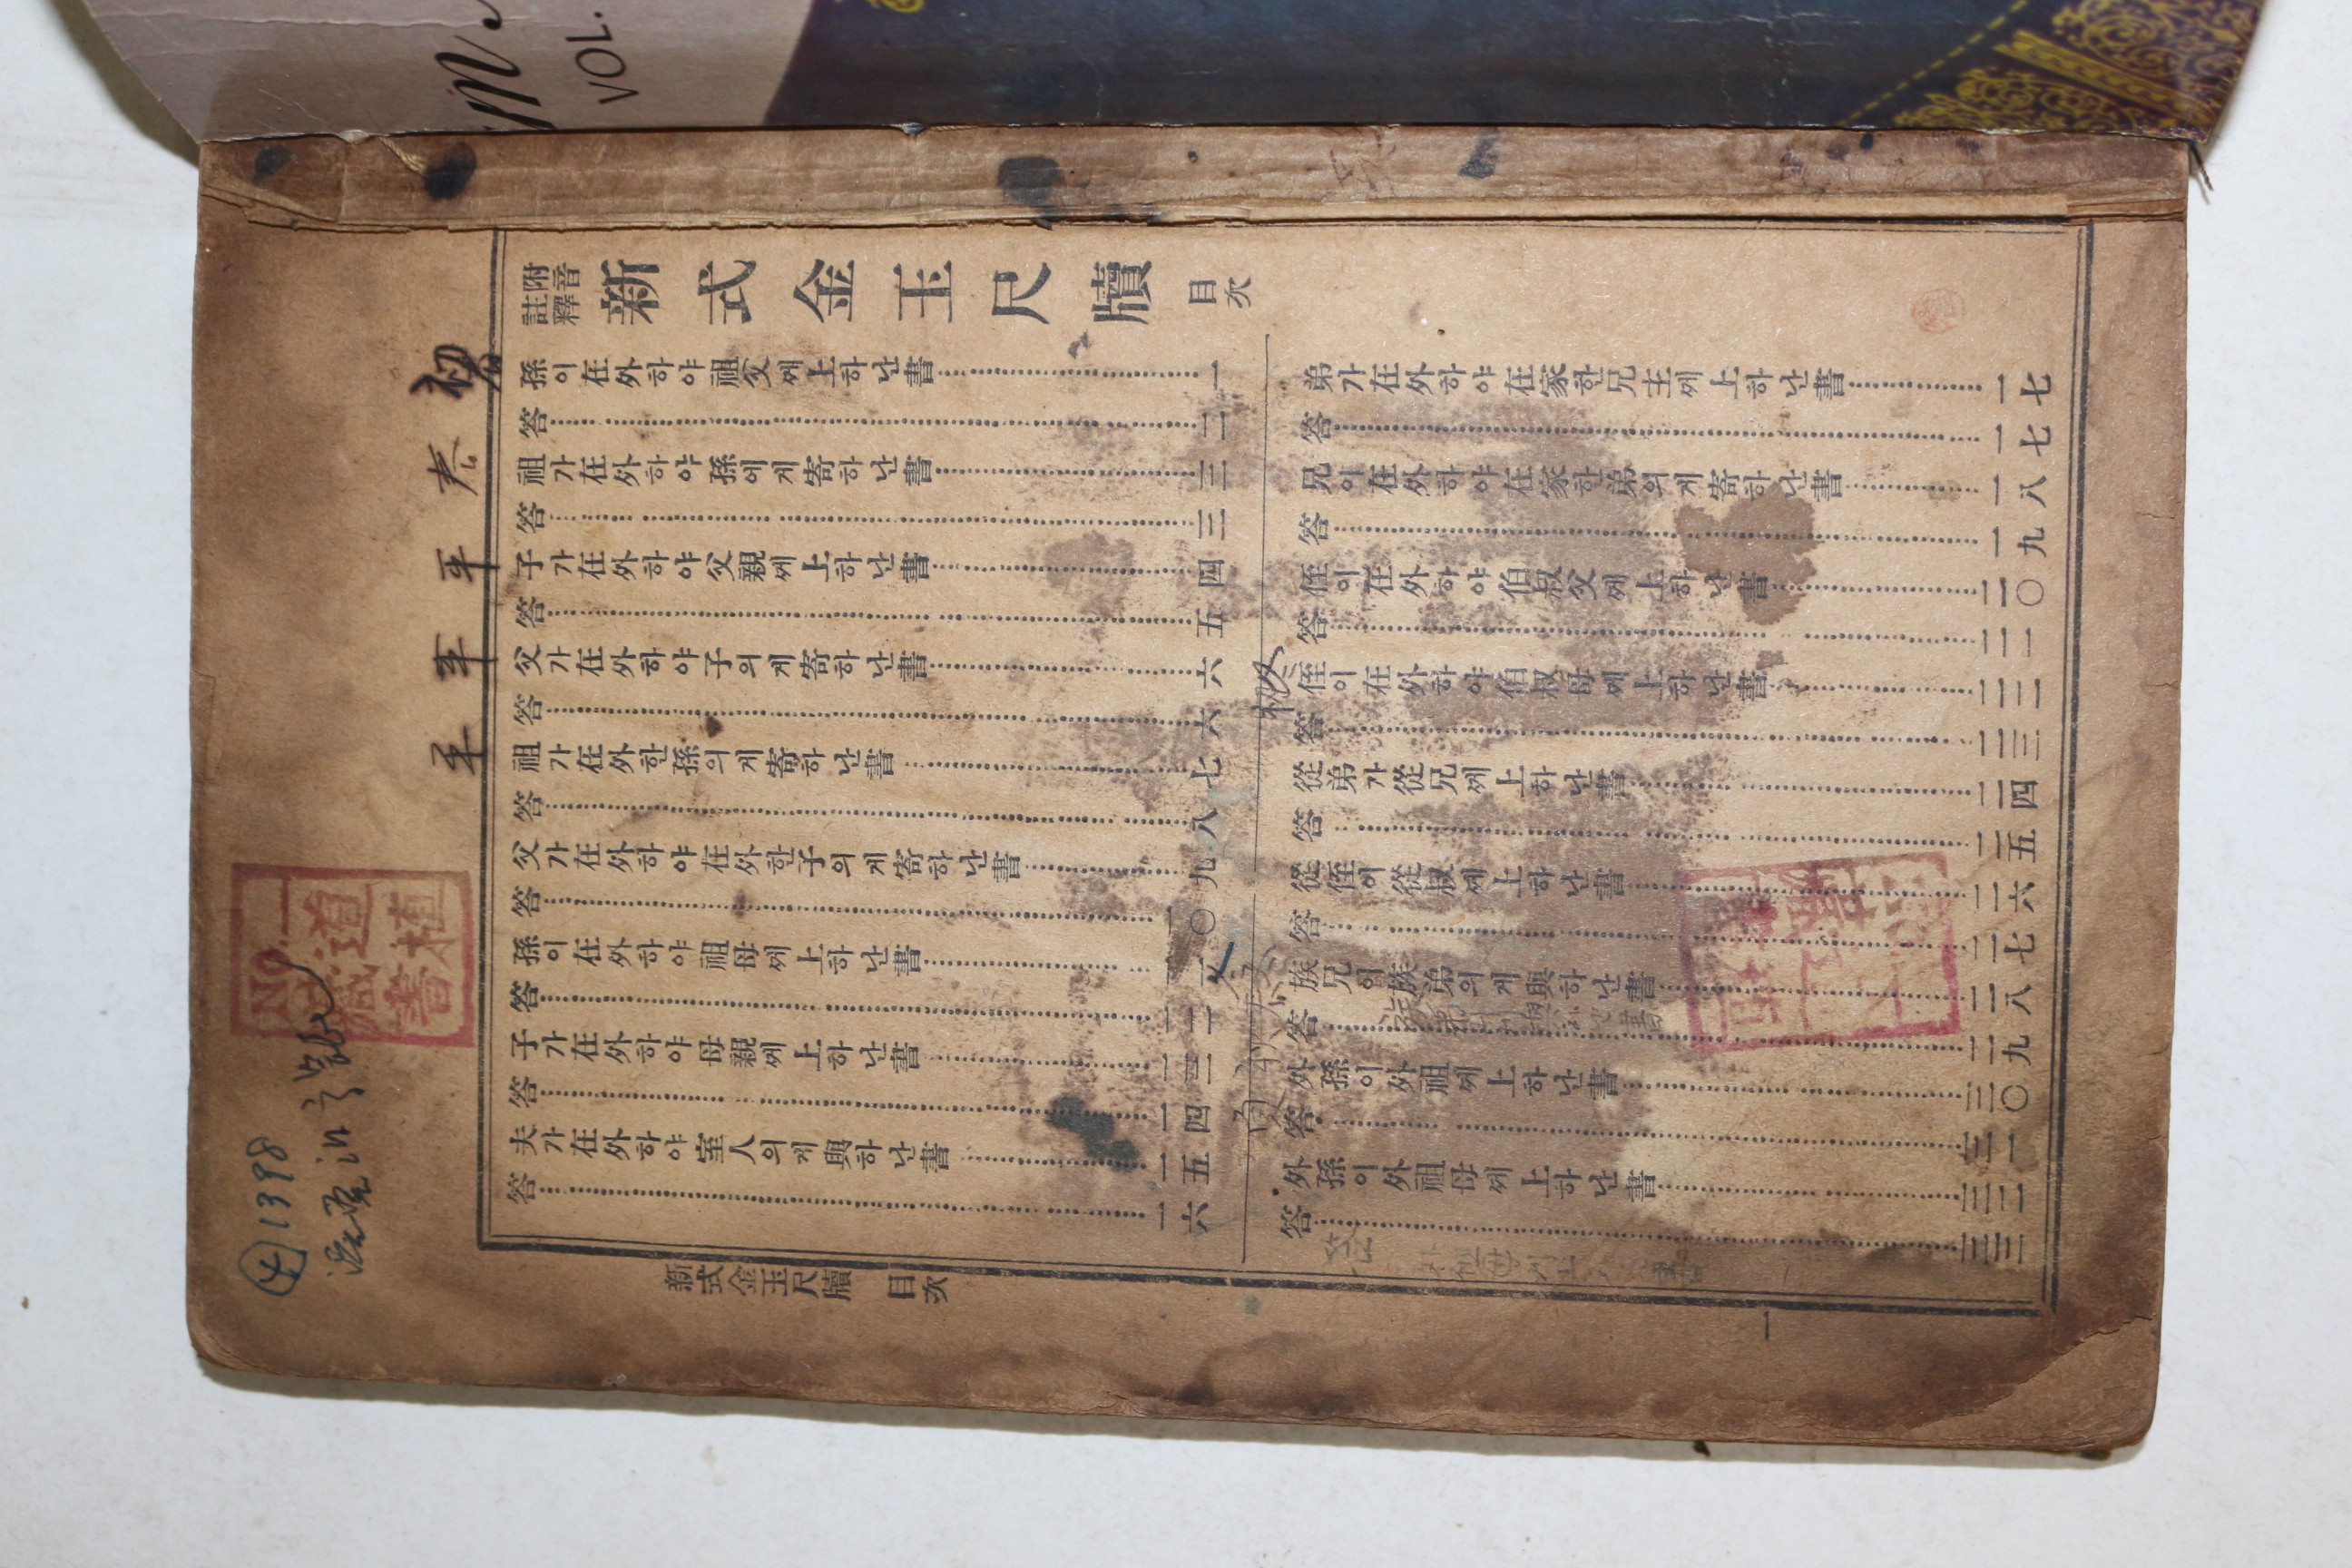 ④ 1398
No.一
道植
藏書
初春 春 平 平 平
附音
註釋
新式金玉尺牘 目次
孫이在外하야祖父ᄭᅦ上하난書 一
答 二
祖가在外하야孫에게寄하난書 三
答 三
子가在外하야父親ᄭᅦ上하난書 四
答 五
父가在外하야子의게寄하난書 六
答 六
祖가在外한孫의게寄하난書 七
答 八
父가在外하야在外한子의게寄하난書 九
答 一〇
孫이在外하야祖母ᄭᅦ上하난書
答
子가在外하야母親ᄭᅦ上하난書 一三
答 一四
夫가在外하야室人의게與하난書 一五
答 一六
弟가在外하야在家한兄主ᄭᅦ上하난書 一七
答 一七
兄이在外하야在家한弟의게寄하난書 一八
答 一九
侄이在外하야伯叔父ᄭᅦ上하난書 二〇
答 二一
侄이在外하야伯叔母ᄭᅦ上하난書 二二
答 二三
從弟가從兄ᄭᅦ上하난書 二四
答 二五
從侄이從叔ᄭᅦ上하난書 二六
答 二七
族兄이族弟의게與하난書 二八
答 二九
外孫이外祖ᄭᅦ上하난書 三〇
答 三一
外孫이外祖母ᄭᅦ上하난書 三二
答 三三
新式金玉尺牘 目次
一
VOL.